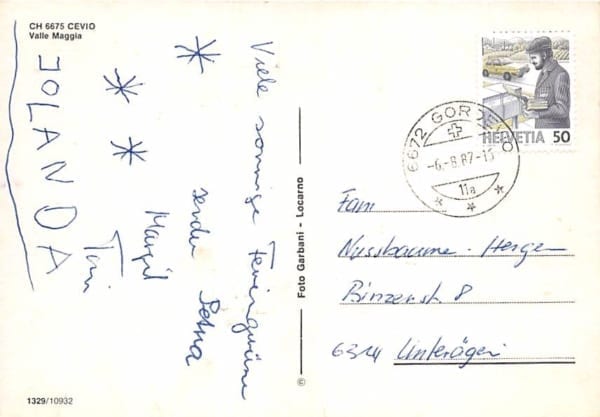 CH 6675 CEVIO
Valle Maggia
Viele sonnige Feriengrüsse
senden Petra
Margit
Toni
JOLANDA
Foto Garbani - Locarno
©
1329/10932
6672 GORDEVIO
-6.-8.87-15
11a
HELVETIA 50
Fam
Nussbaumer-Herger
Binzenstr 8
6314 Unterägeri